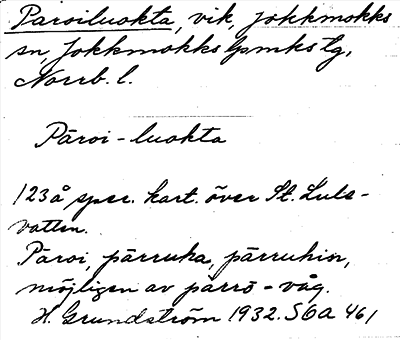 Paroiluokta, vik, Jokkmokks
sn, Jokkmokks lpmks tg,
Norrb. l.
Päroi-luokta
123å spec. kart. över St. Lule-
vatten.
Päroi, pärruka, pärruhin,
möjligen av pärrō - våg.
H. Grundström 1932. SOA 461